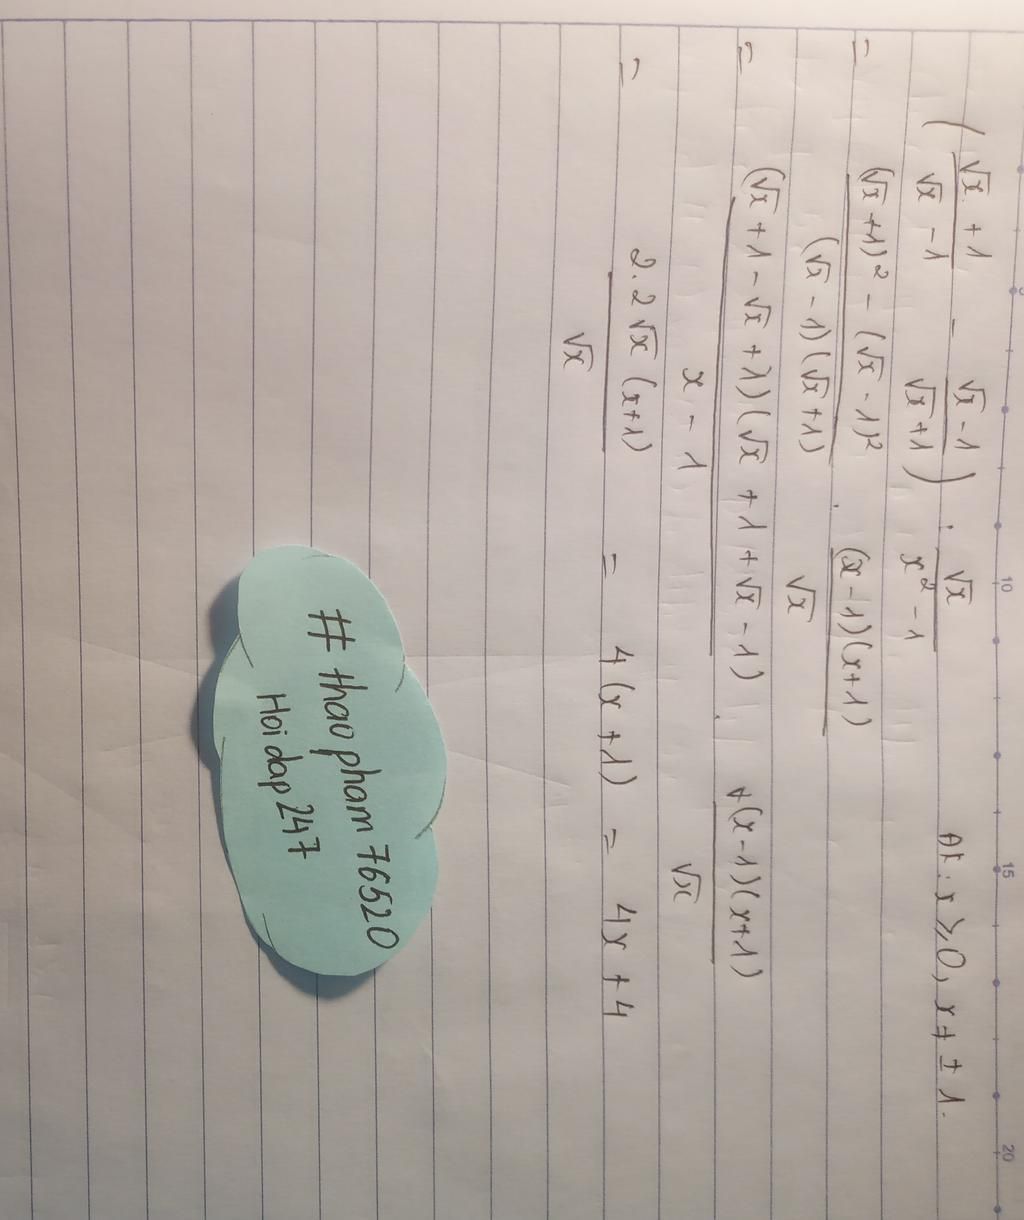 ( (√x + 1)/(√x - 1) - (√x - 1)/(√x + 1) ) : √x/(x² - 1) ĐK: x ≥ 0, x ≠ ± 1.
= ((√x + 1)² - (√x - 1)²)/((√x - 1)(√x + 1)) . ((x - 1)(x + 1))/√x
= ((√x + 1 - √x + 1)(√x + 1 + √x - 1))/(x - 1) . (x - 1)(x + 1)/√x
= (2.2√x (x+1))/√x = 4(x + 1) = 4x + 4
# thao pham 76520
Hoi dap 247
10
15
20